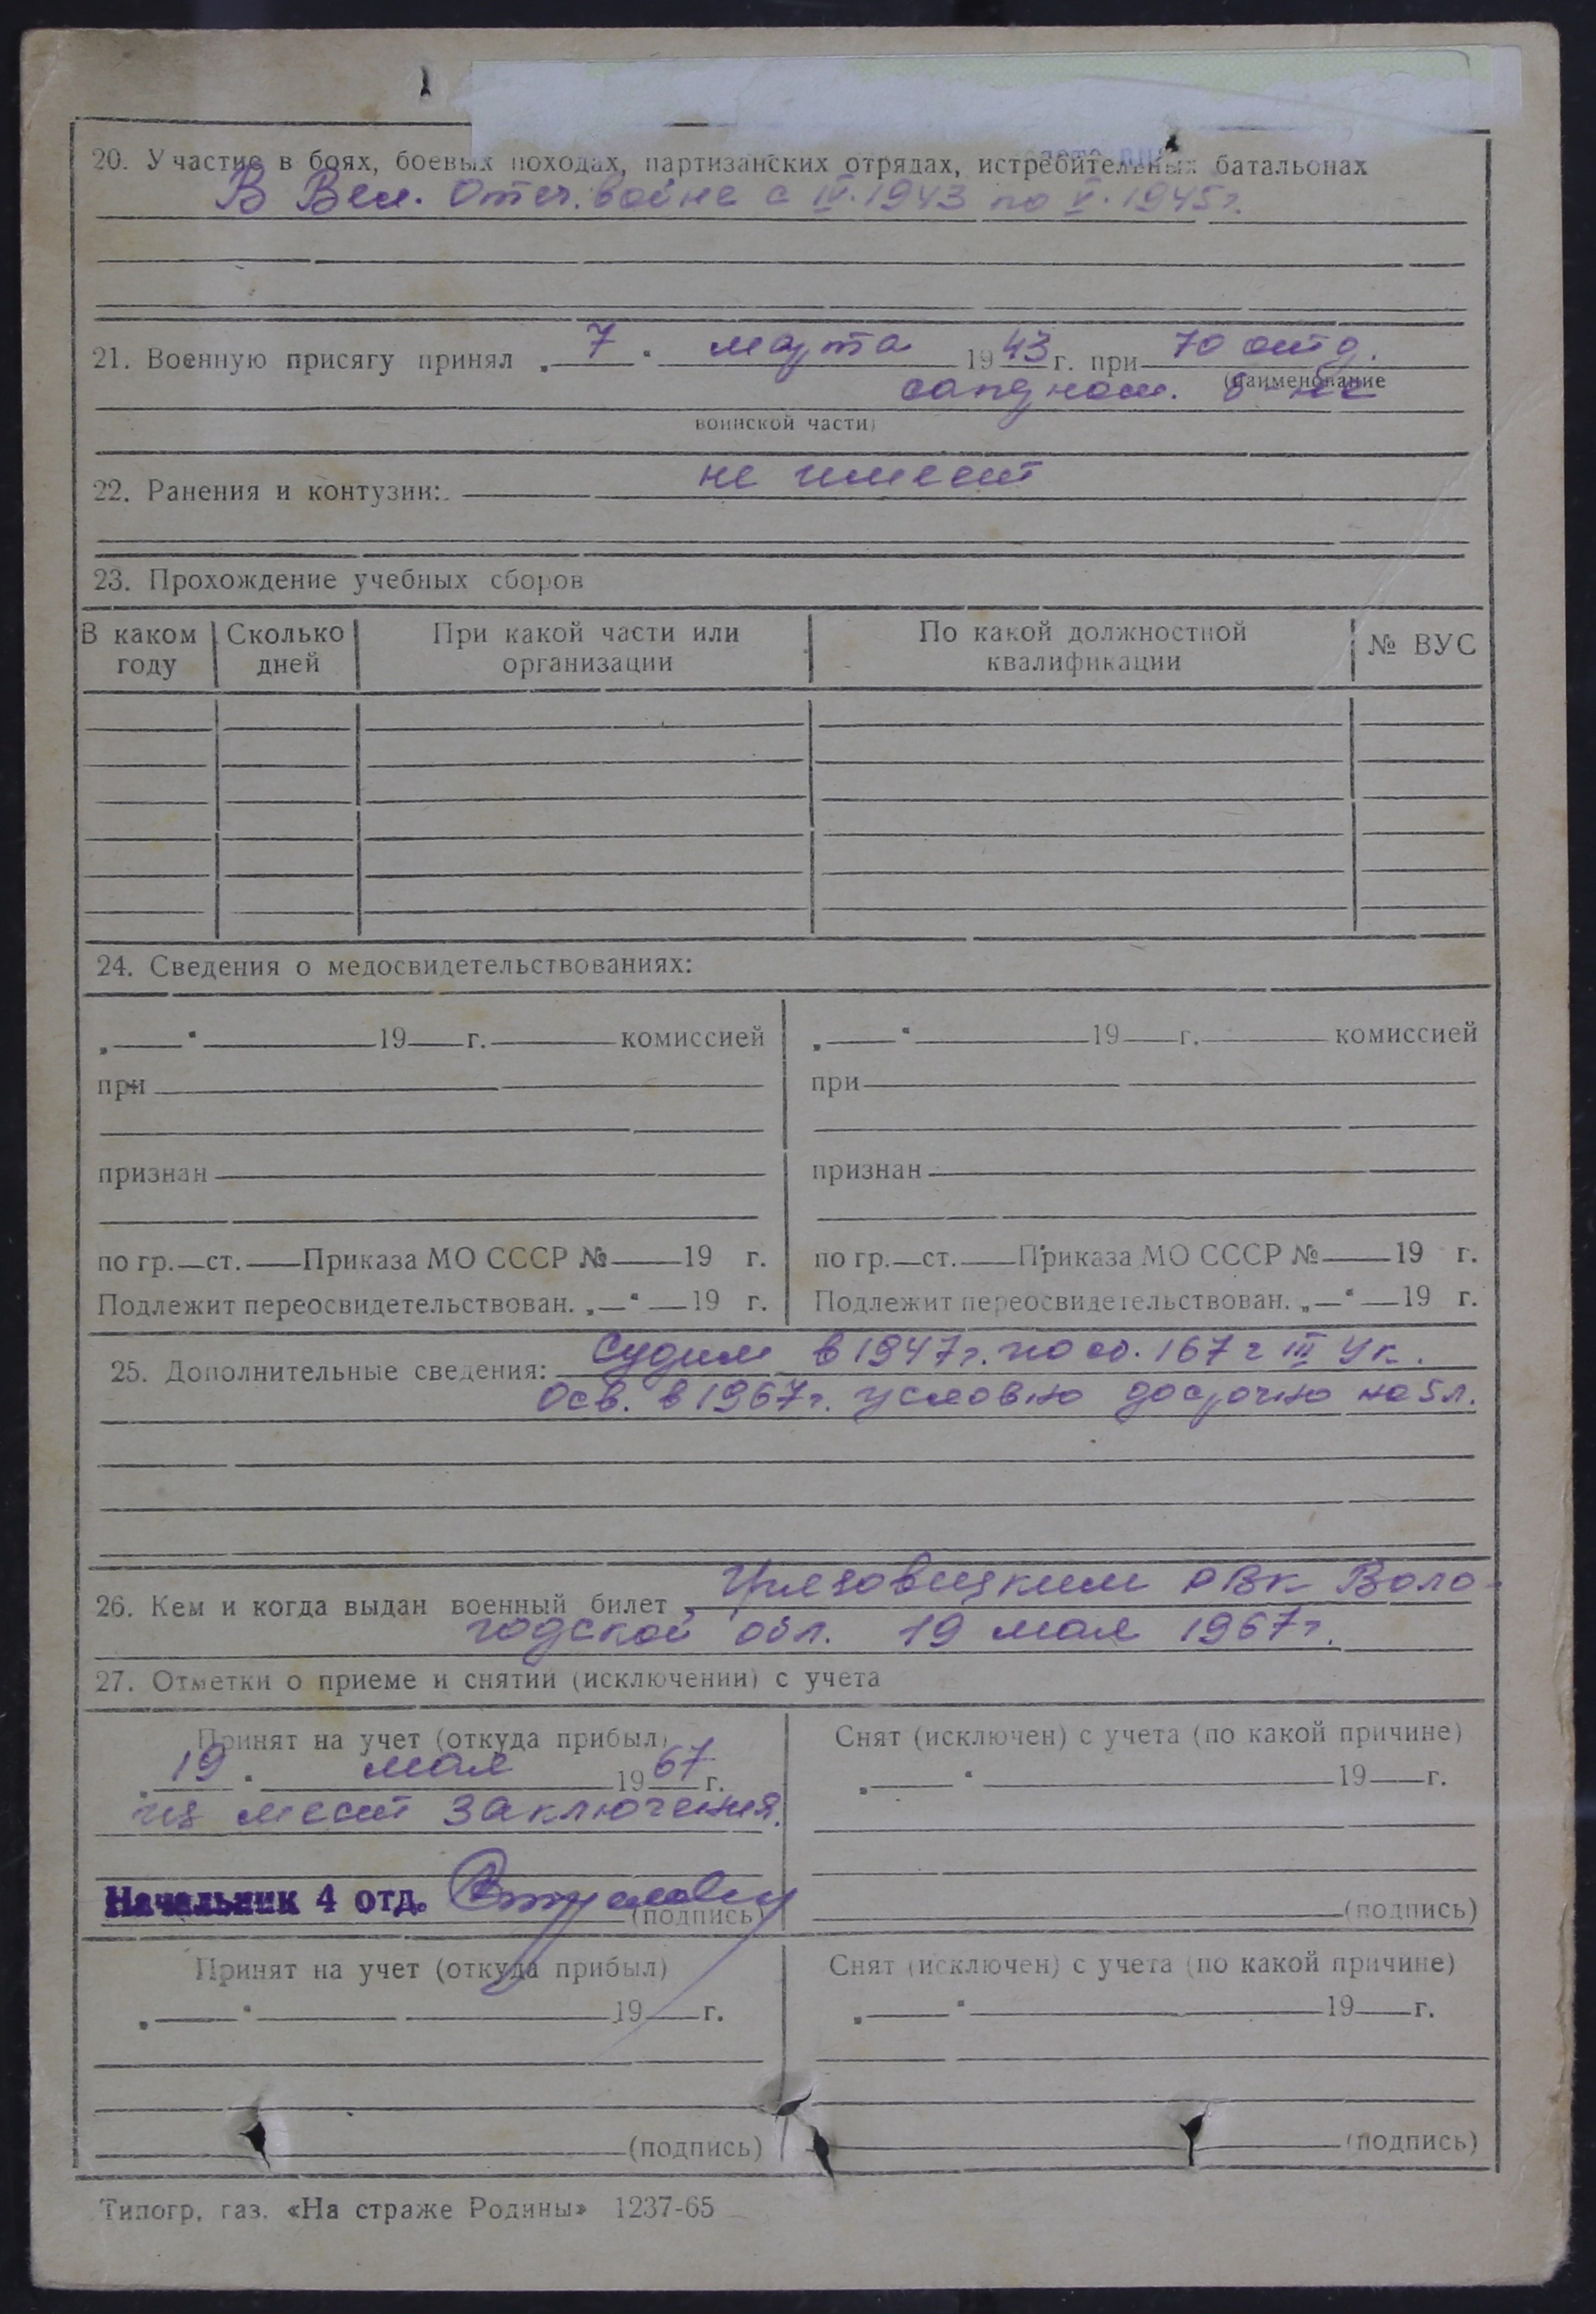 20. Участие в боях, боевых походах, партизанских отрядах, истребительных батальонах
В Вел. Отеч. войне с IV. 1943 по V. 1945 г.
21. Военную присягу принял „ 7 “ марта 1943 г. при 70 отд.
(наименование
сапдном. б-не
воинской части)
22. Ранения и контузии: не имеет
23. Прохождение учебных сборов
В каком году Сколько дней При какой части или организации По какой должностной квалификации № ВУС
24. Сведения о медосвидетельствованиях:
„ “ 19 г. комиссией „ “ 19 г. комиссией
при при
признан признан
по гр. ст. Приказа МО СССР № 19 г. по гр. ст. Приказа МО СССР № 19 г.
Подлежит переосвидетельствован. „ “ 19 г. Подлежит переосвидетельствован. „ “ 19 г.
25. Дополнительные сведения: Судим в 1947 г. по ст. 167 ч III Ук.
Осв. в 1967 г. условно досрочно на 5 л.
26. Кем и когда выдан военный билет Грязовецким РВК Воло-
годской обл. 19 мая 1967 г.
27. Отметки о приеме и снятии (исключении) с учета
Принят на учет (откуда прибыл) Снят (исключен) с учета (по какой причине)
„ 19 “ мая 1967 г. „ “ 19 г.
из мест заключения.
Начальник 4 отд.
(подпись) (подпись)
Принят на учет (откуда прибыл) Снят (исключен) с учета (по какой причине)
„ “ 19 г. „ “ 19 г.
(подпись) (подпись)
Типогр. газ. «На страже Родины» 1237-65